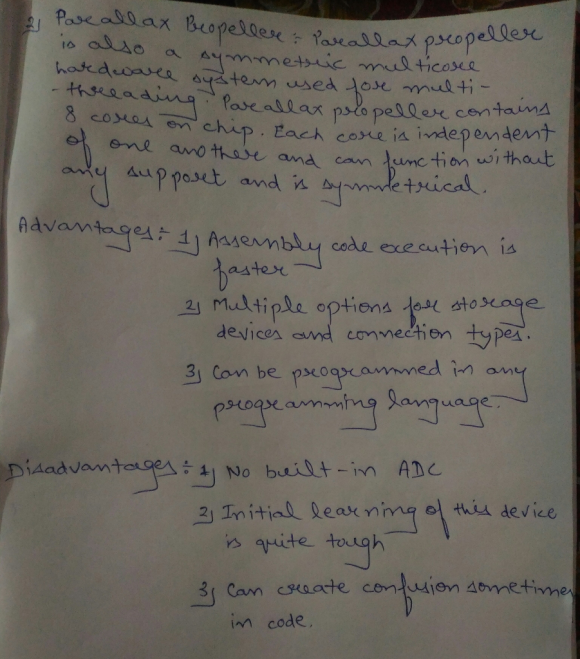 2) Parallax Propeller :- Parallax propeller
is also a symmetric multicore
hardware system used for multi-
-threading. Parallax propeller contains
8 cores on chip. Each core is independent
of one another and can function without
any support and is symmetrical.
Advantages :- 1) Assembly code execution is
faster
2) Multiple options for storage
devices and connection types.
3) Can be programmed in any
programming language.
Disadvantages :- 1) No built-in ADC
2) Initial learning of this device
is quite tough
3) Can create confusion sometimes
in code.